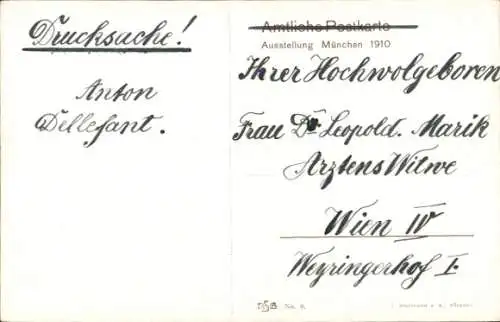 Drucksache!
Anton
Dellefant.
Amtliche Postkarte
Ausstellung München 1910
Ihrer Hochwolgeboren
Frau Dr Leopold. Marik
Arztens Witwe
Wien IV
Weyringerhof I.
No. 6.